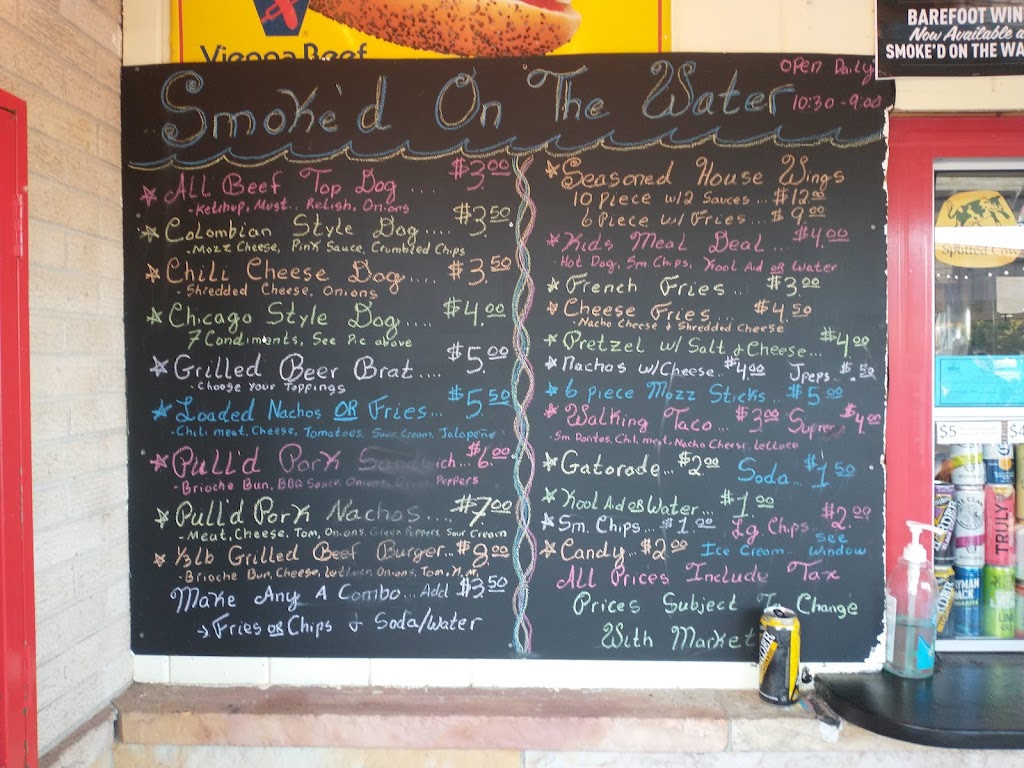 Vienna Beef
BAREFOOT WIN
Now Available a
SMOKE'D ON THE WA
Smoke'd On The Water
Open Daily
10:30 - 9:00
All Beef Top Dog .... $3.00
- Ketchup, Must.. Relish, Onions
Colombian Style Dog .... $3.50
- Mozz Cheese, Pink Sauce, Crumbled Chips
Chili Cheese Dog .... $3.50
- Shredded Cheese, Onions
Chicago Style Dog .... $4.00
7 Condiments, See Pic above
Grilled Beer Brat .... $5.00
- Choose Your Toppings
Loaded Nachos OR Fries... $5.50
- Chili meat, Cheese, Tomatoes, Sour Cream, Jalapeño
Pull'd Pork Sandwich... $6.00
- Brioche Bun, BBQ Sauce, Onions, Green Peppers
Pull'd Pork Nachos .... $7.00
- Meat, Cheese, Tom, Onions, Green Peppers, Sour Cream
1/3 lb Grilled Beef Burger.. $8.00
- Brioche Bun, Cheese, Lettuce, Onions, Tom,
Make Any A Combo... Add $3.50
→ Fries OR Chips & Soda/Water
Seasoned House Wings
10 piece w/ 2 Sauces... $12.00
6 Piece w/ Fries... $9.00
Kids Meal Deal... $4.00
Hot Dog, Sm Chips, Kool Aid OR Water
French Fries... $3.00
Cheese Fries.... $4.50
- Nacho Cheese & Shredded Cheese
Pretzel w/ Salt & Cheese... $4.00
Nachos w/ Cheese.. $4.00 Jpeps.. $.50
6 piece Mozz Sticks... $5.00
Walking Taco... $3.00 Supreme $4.00
- Sm Doritos, Chil. meat, Nacho Cheese, lettuce
Gatorade... $2.00 Soda... $1.50
Kool Aid OR Water... $1.00
Sm Chips... $1.00 Lg Chips.. $2.00
Candy... $2.00 Ice Cream... See Window
All Prices Include Tax
Prices Subject To Change
With Market
$5
$4
TRULY